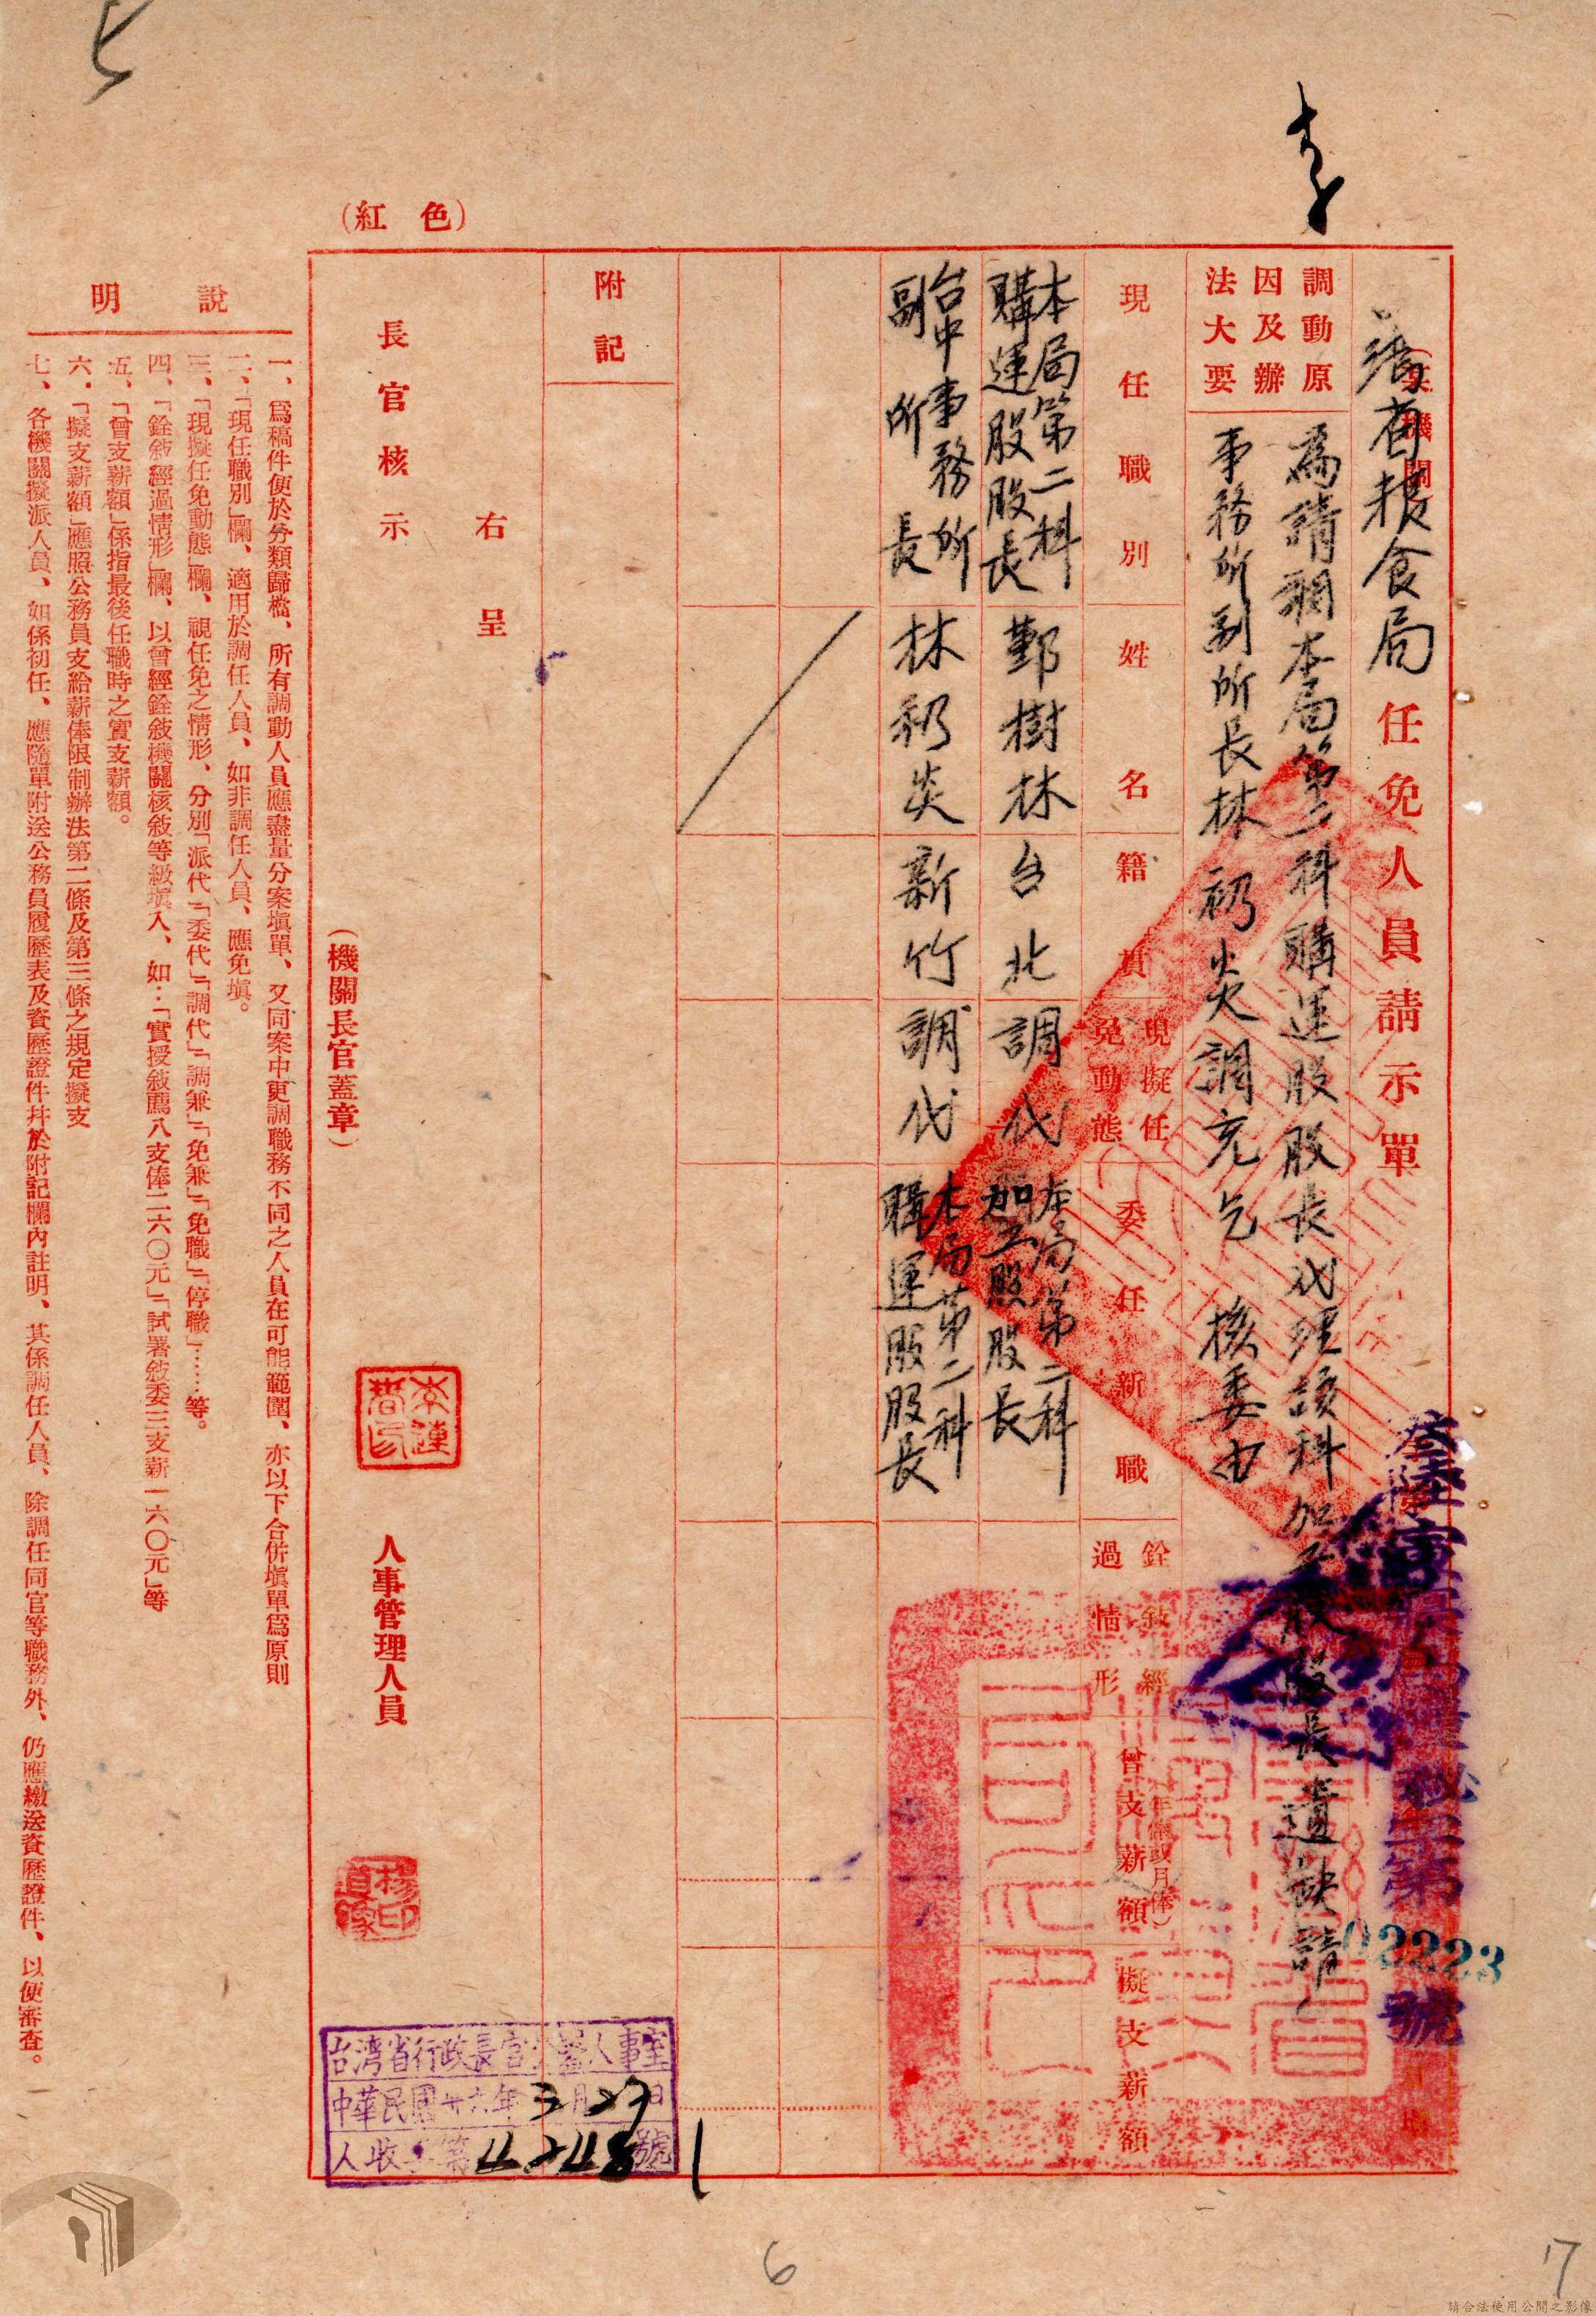 灣省粮食局任免人員請示單
(某機關)
調動原因及辦法大要
為請調本局第二科購運股股長代理該科加工股股長遺缺請
事務所副所長林礽炎調充乞 核委由
現任職別
姓名
籍貫
現擬任免動態
委任新職
銓敘經過情形
曾支薪額
(年俸或月俸)
擬支薪額
本局第二科購運股股長
鄞樹林
台北
調代
本局第二科加工股股長
台中事務所副所長
林礽炎
新竹
調代
本局第二科購運股股長
附記
右呈
長官核示
(機關長官蓋章)
人事管理人員
楊印道
第02223號
台湾省行政長官公署人事室
中華民國卅六年3月27日
人收字第4248號
(紅色)
說明
一、爲稿件便於分類歸檔、所有調動人員應盡量分案填單、又同案中更調職務不同之人員在可能範圍、亦以下合併填單爲原則
二、「現任職別」欄、適用於調任人員、如非調任人員、應免填。
三、「現擬任免動態」欄、視任免之情形、分別「派代」「委代」「調代」「調兼」「免兼」「免職」「停職」……等。
四、「銓敘經過情形」欄、以曾經銓敘機關核敘等級填入、如：「實授敘薦八支俸二六〇元」「試署敘委三支薪一六〇元」等
五、「曾支薪額」係指最後任職時之實支薪額。
六、「擬支薪額」應照公務員支給薪俸限制辦法第二條及第三條之規定擬支
七、各機關擬派人員、如係初任、應隨單附送公務員履歷表及資歷證件幷於附記欄內註明、其係調任人員、除調任同官等職務外、仍應繳送資歷證件、以便審查。
6
17
請合法使用公開之影像